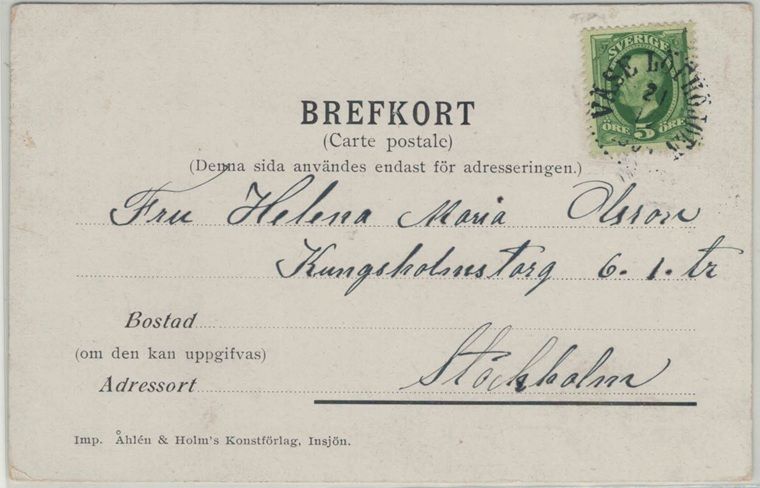 SVERIGE
ÖRE 5 ÖRE
VASE LÖFHÖJDEN
21
BREFKORT
(Carte postale)
(Denna sida användes endast för adresseringen.)
Fru Helena Maria Olsson
Kungsholmstorg 6. 1. tr
Bostad
(om den kan uppgifvas)
Adressort Stockholm
Imp. Åhlén & Holm's Konstförlag, Insjön.